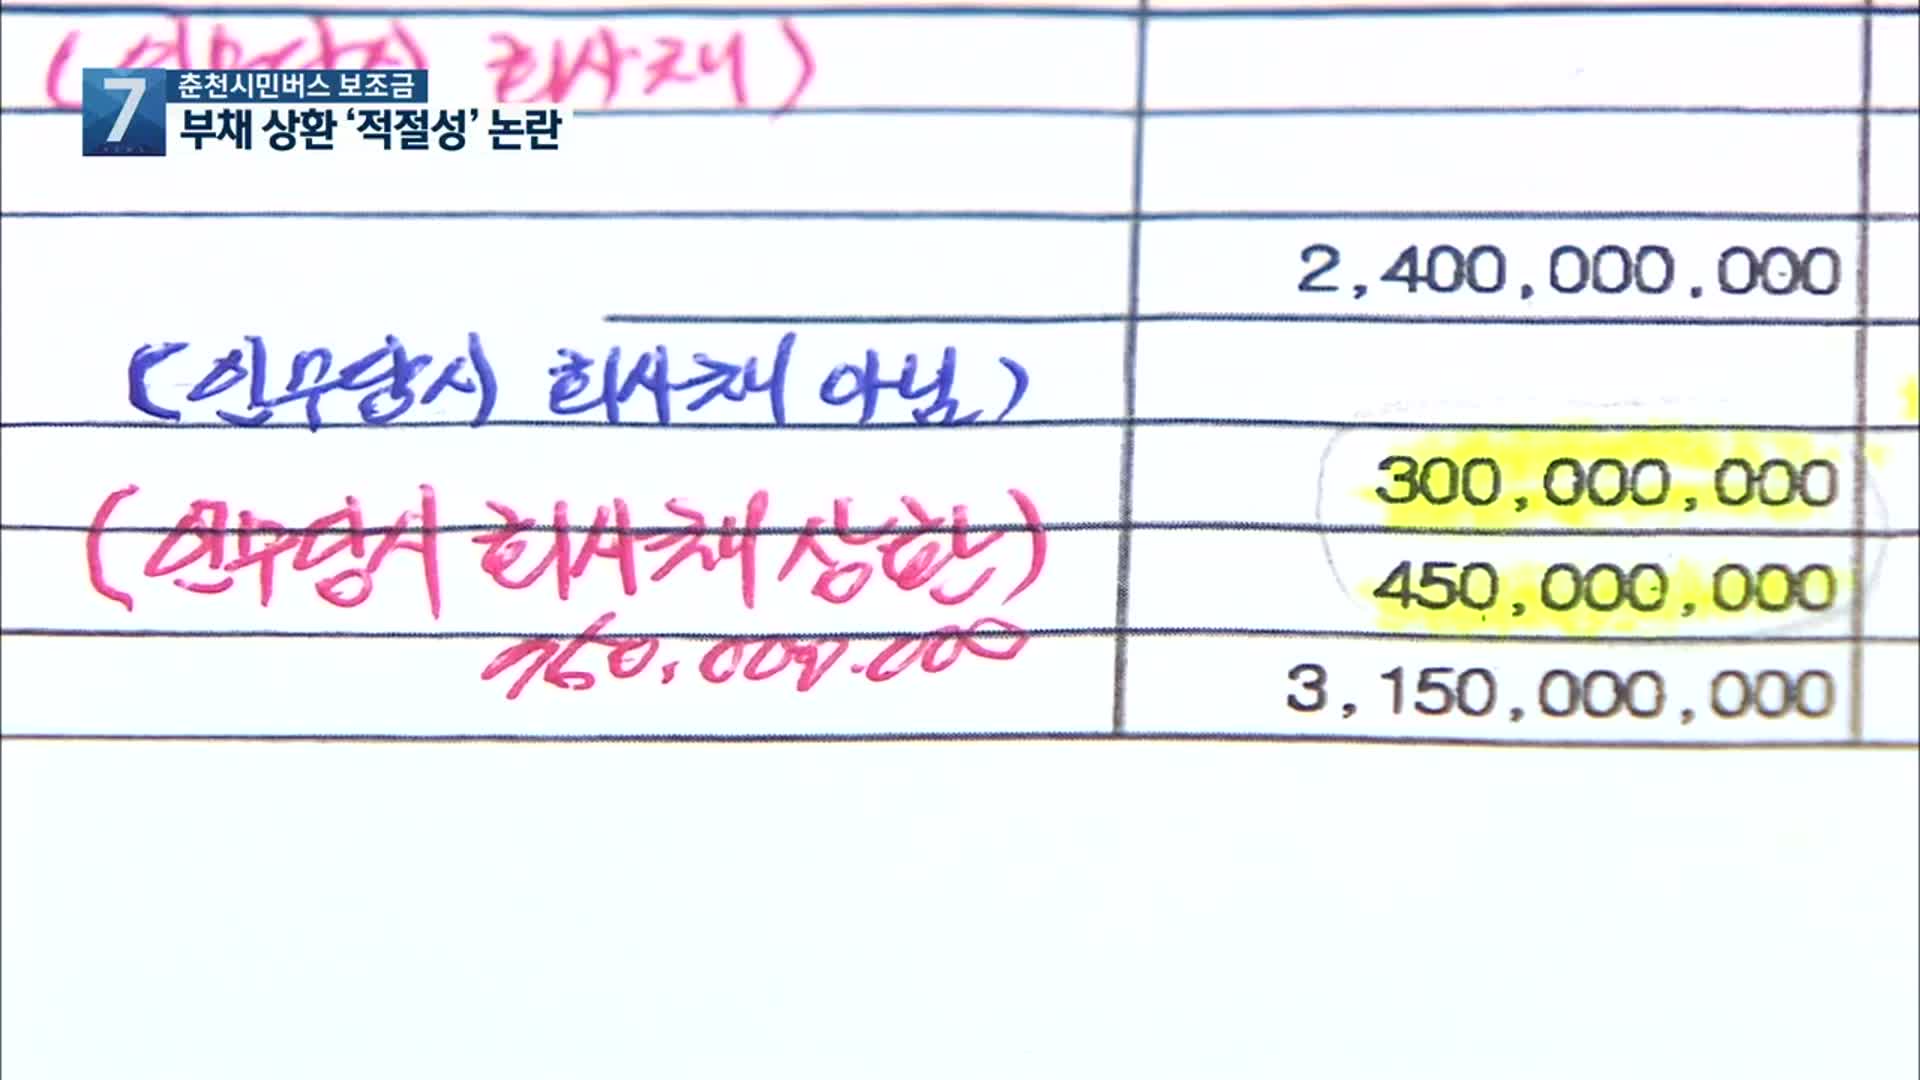 (인무당시 회사채)
7
춘천시민버스 보조금
부채 상환 ‘적절성’ 논란
2,400,000.000
(인무당시 회사채 아님)
300,000,000
(인무당시 회사채 상환)
450,000,000
760,000.000
3,150,000,000